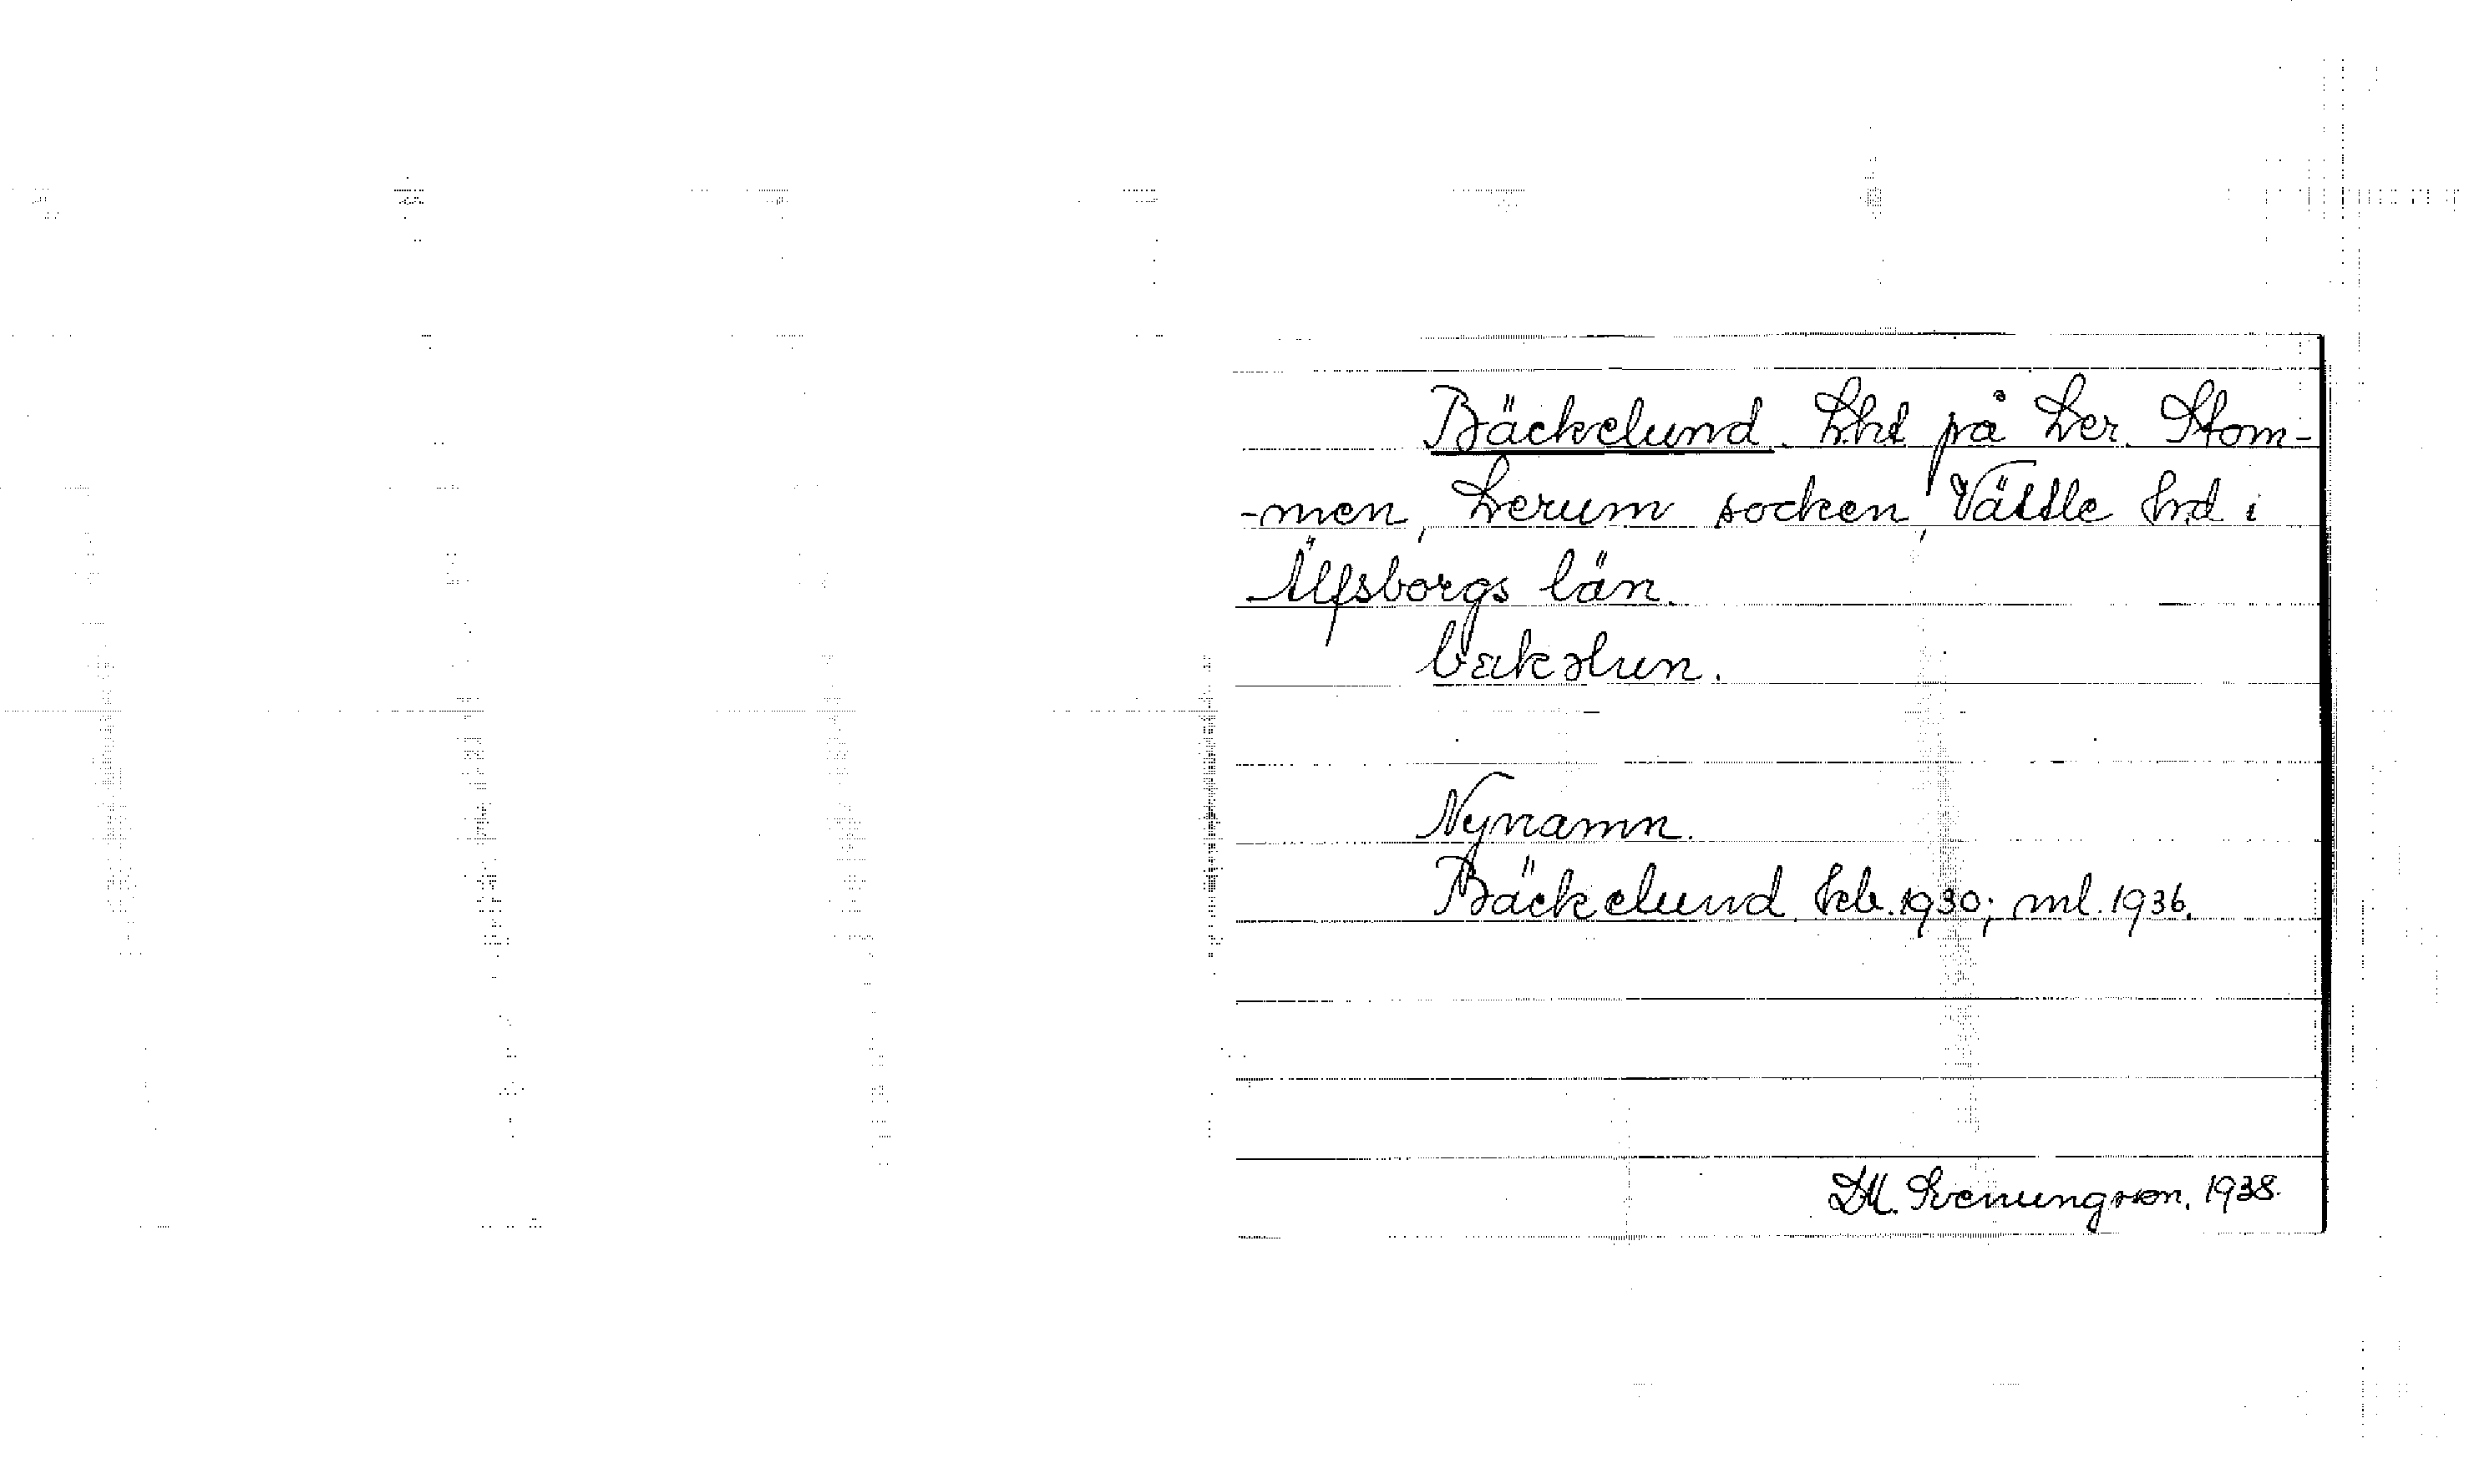 Bäckelund. Lht på Ler. Stom-
-men, Lerum socken, Vättle hrd i
Älfsborgs län.
bækəlun.
Nynamn.
Bäckelund. hcb. 1930; ml. 1936.
Svenungsson. 1938.